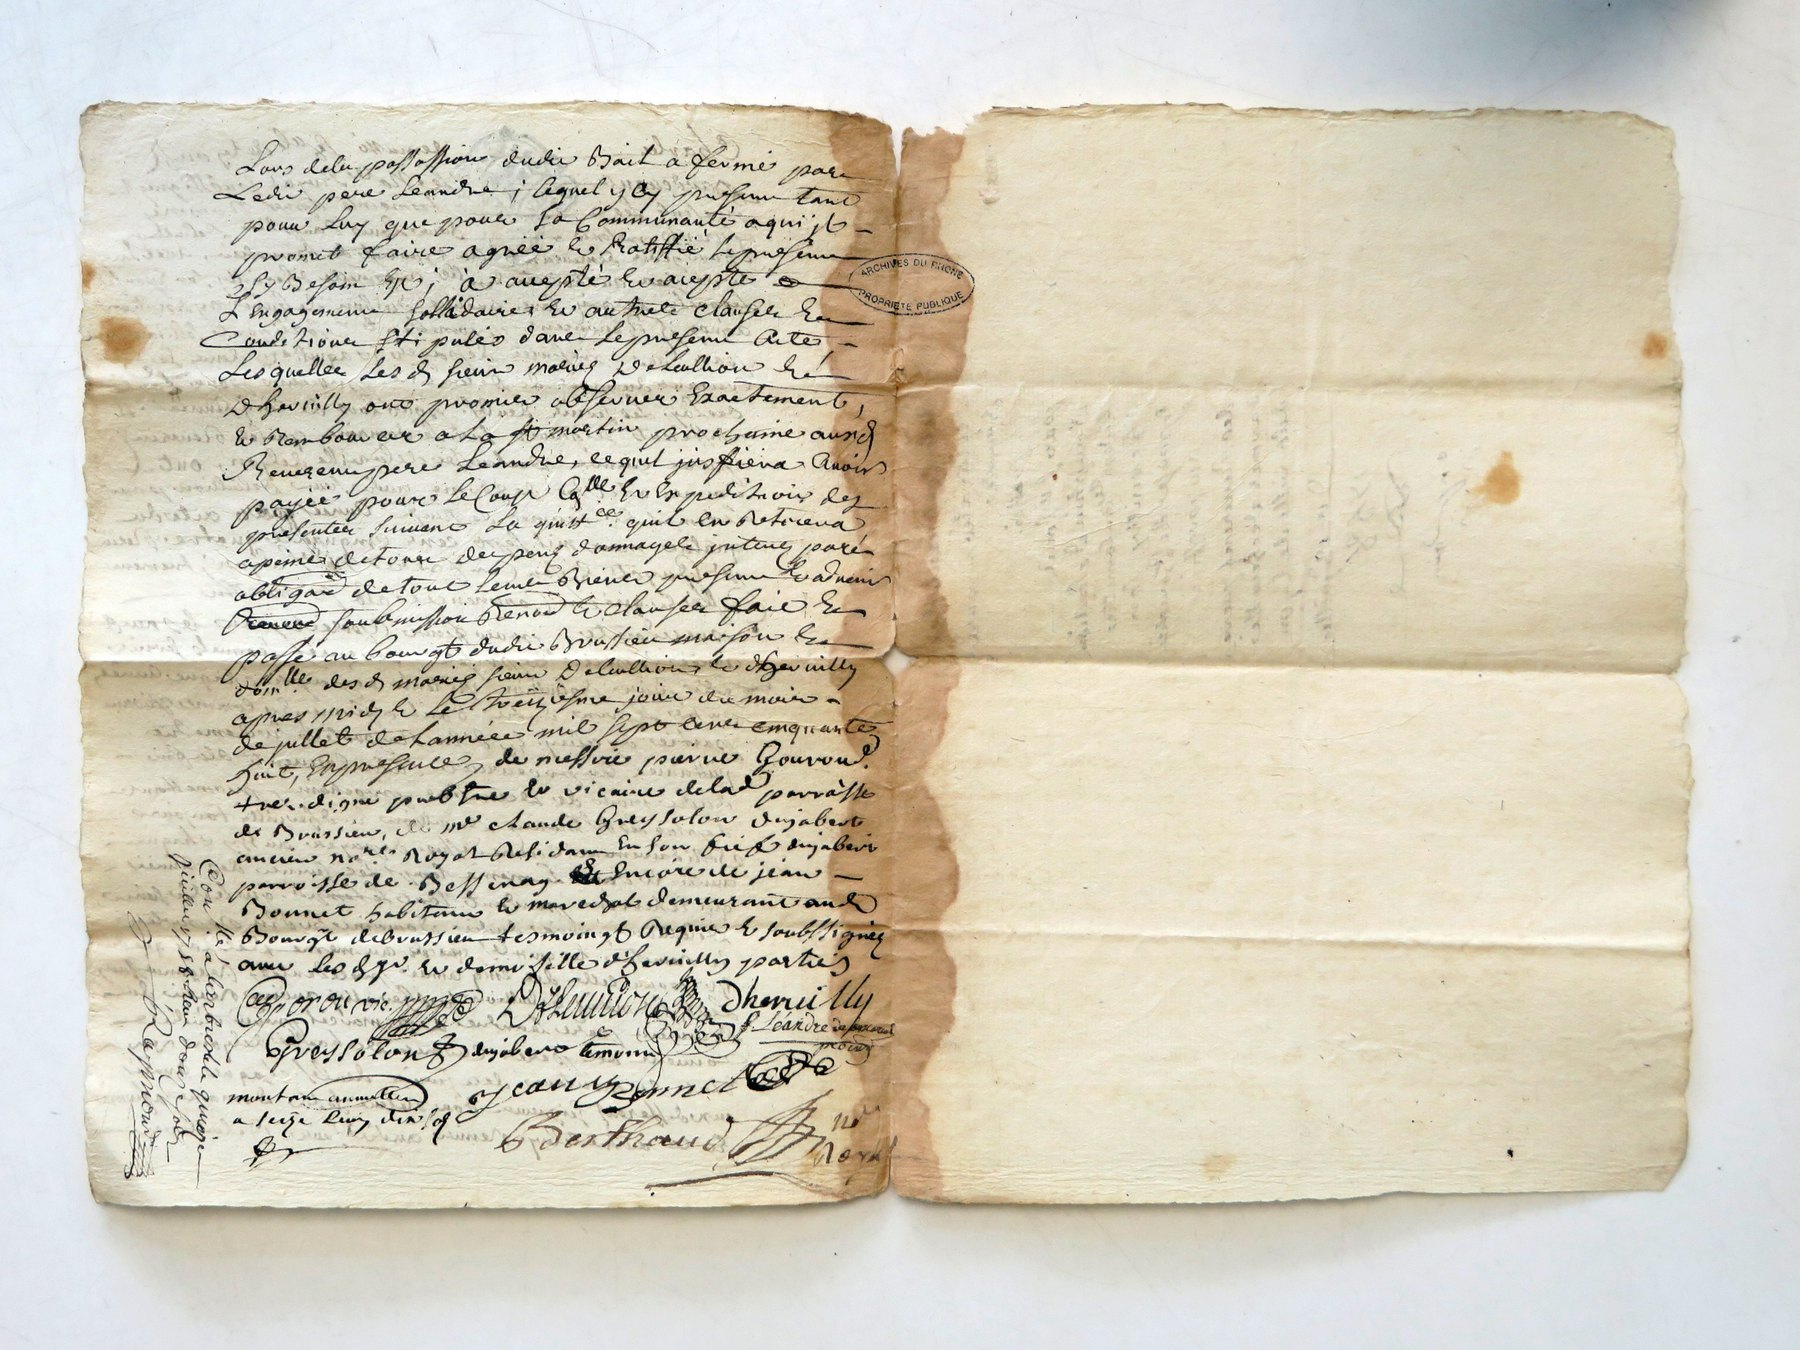 Lors de la passassion dudit Bail a ferme par
Ledit pere Leandre, lequel y cy present tant
pour Luy que pour sa Communauté a qui jl
promet faire agréé et Ratiffié le present
sy Besoin Est, à accepté et accepte
L'Engagement sollidaire et autres clauses et
Conditions stipulés dans le present Acte,
Lesquelles Les d sieur mariés Delullion et
Dheruilly ont promis observer Exactement,
et Rembourcer a La st martin prochaine aud
Reuerend pere Leandre, ce quil justifiera Avoir
payée pour le Coust Clle et Expeditions des
presentes suivant La quittce quil en Retirera
a peine de tous depens domages jnterets
obligaon de tous leurs Biens presents et advenir
soubmission Renon et clauses fait et
passé au bourgt dudit Brussieu maison
domlle des d mariés sieur Delullion et dheruilly
apres midy Le treiziesme jour du mois
de juillet de Lannée mil sept cent cinquante
huit, En presence de messire pierre Gouroud
tres digne prebtre et vicaire de lad parroisse
de Brussieu, de me claude Greysolon dujabert
ancien nore Royal Residant En son fief dujabert
parroisse de Bessenay Encore de jean
Bonnet habitant et marechal demeurant aud
Bourgt de Brussieu tesmoings Requis et soubssignés
avec Les d sr et demoiselle d'heruilly parties
vic. Delullion Dheruilly
f. Leandre
Greysolon dujabert temoin
jean Bonnet
montant
a seize
Berthaud nore
Royal
Conlle a Larbresle quinze
juillet 1758
Raymond
ARCHIVES DU RHONE
PROPRIETE PUBLIQUE